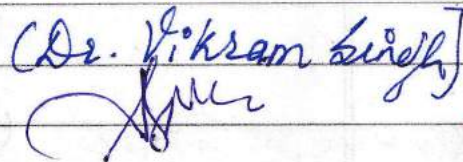 (Dr. Vikram Singh)